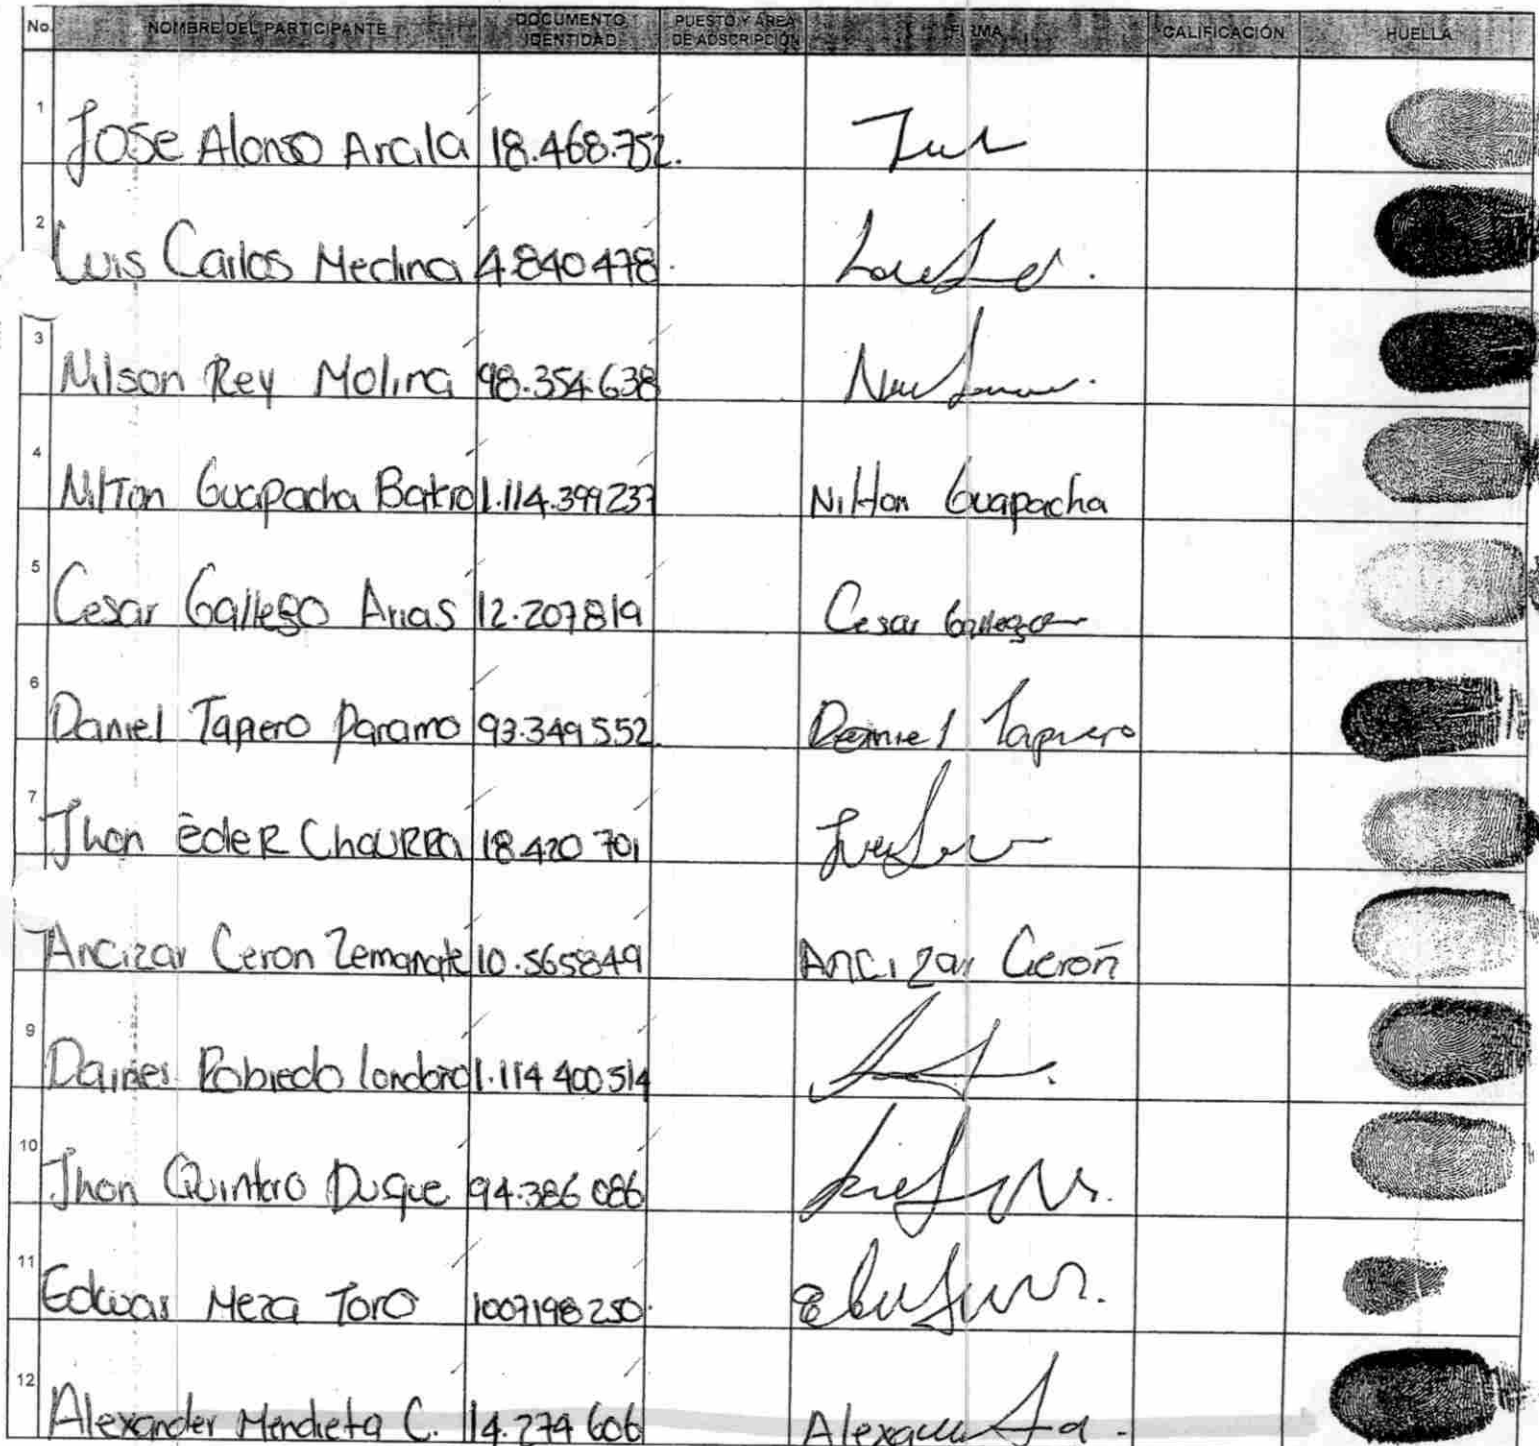 No. NOMBRE DEL PARTICIPANTE DOCUMENTO IDENTIDAD PUESTO Y AREA DE ADSCRIPCIÓN FIRMA CALIFICACIÓN HUELLA
1 Jose Alonso Arcila 18.468.752.
2 Luis Carlos Medina 4.840478.
3 Nilson Rey Molina 98.354.638
4 Nilton Guapacha Batro 1.114.399237 Nilton Guapacha
5 Cesar Gallego Arias 12.207819 Cesar Gallego
6 Daniel Tapero Paramo 93.349552. Daniel Tapiero
7 Jhon Eder Chaurra 18.420 701
Ancizar Ceron Zemanate 10.565849 Ancizar Ceron
9 Daines Robledo Londoño 1.114 400514
10 Jhon Quintero Duque 94.386 086
11 Edwas Meza Toro 1007198250.
12 Alexander Mendieta C. 14.274 606